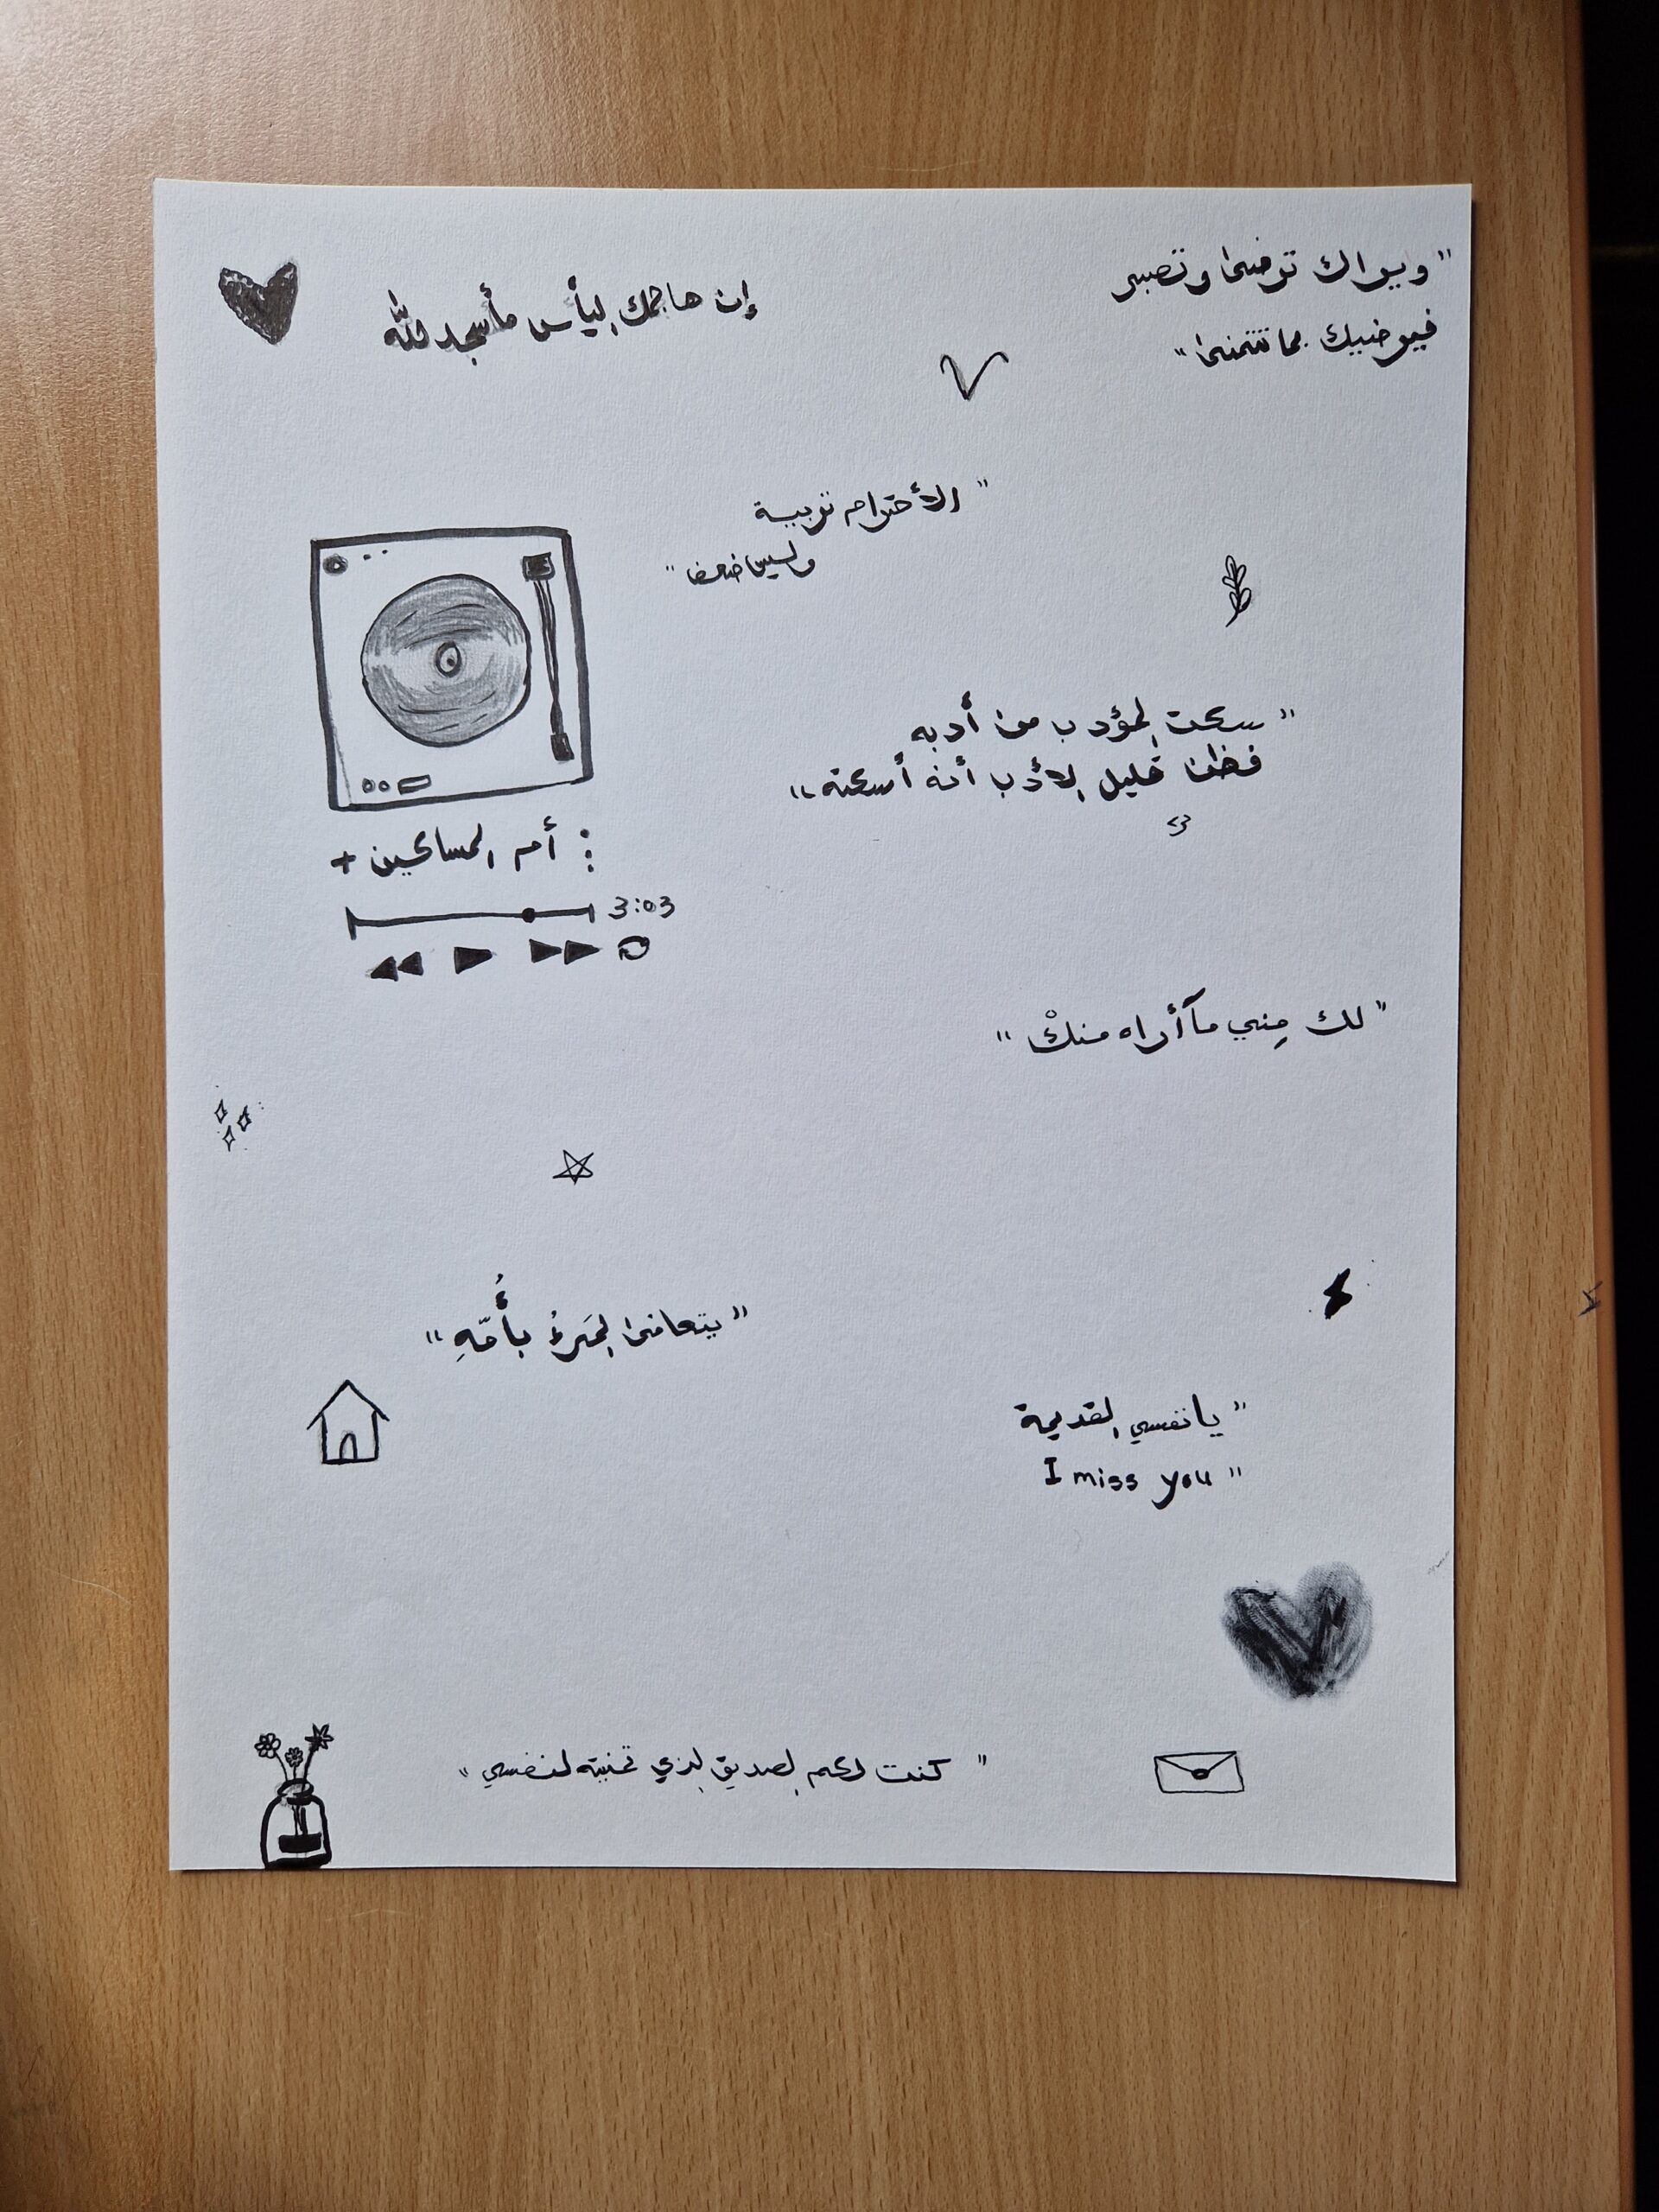 "ويراك ترضى وتصبر
فيرضيك بما تتمنى"
إن هاجمك اليأس فأسجد لله
"الأحترام تربية
وليس ضعف"
"سكت المؤدب من أدبه
فظن قليل الأدب أنه أسكته"
أم المساكين +
3:03
"لك مِني مآ أراه منكْ"
"يتعافى المَرءُ بأُمّهِ"
"يا نفسي القديمة
I miss you"
"كنت لكم الصديق الذي تمنيته لنفسي"